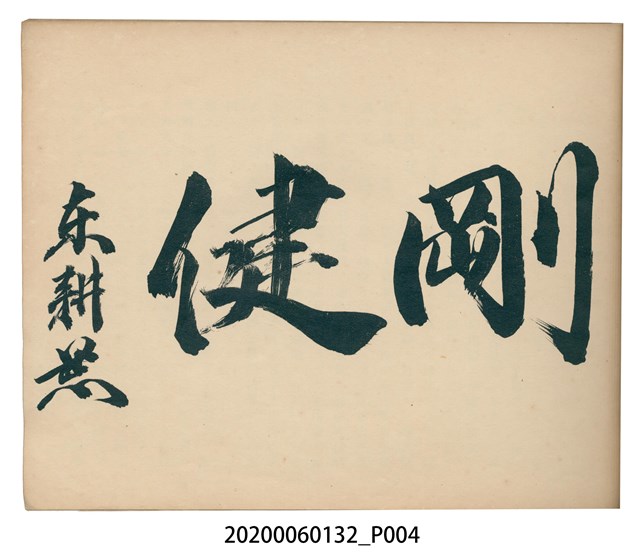 剛健
东耕
20200060132_P004